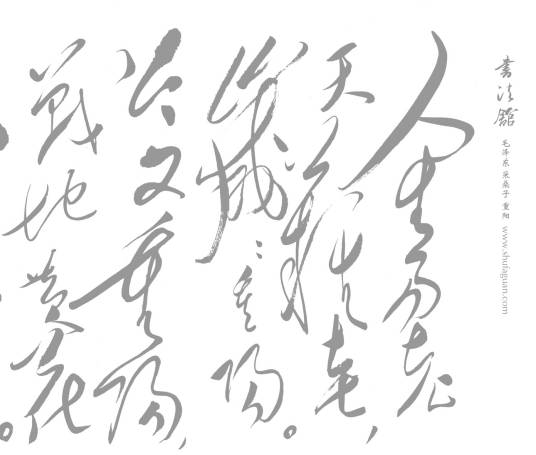 书法馆
毛泽东 采桑子 重阳 www.shufaguan.com
人生易老
天难老，
岁岁重阳。
今又重阳，
战地黄花